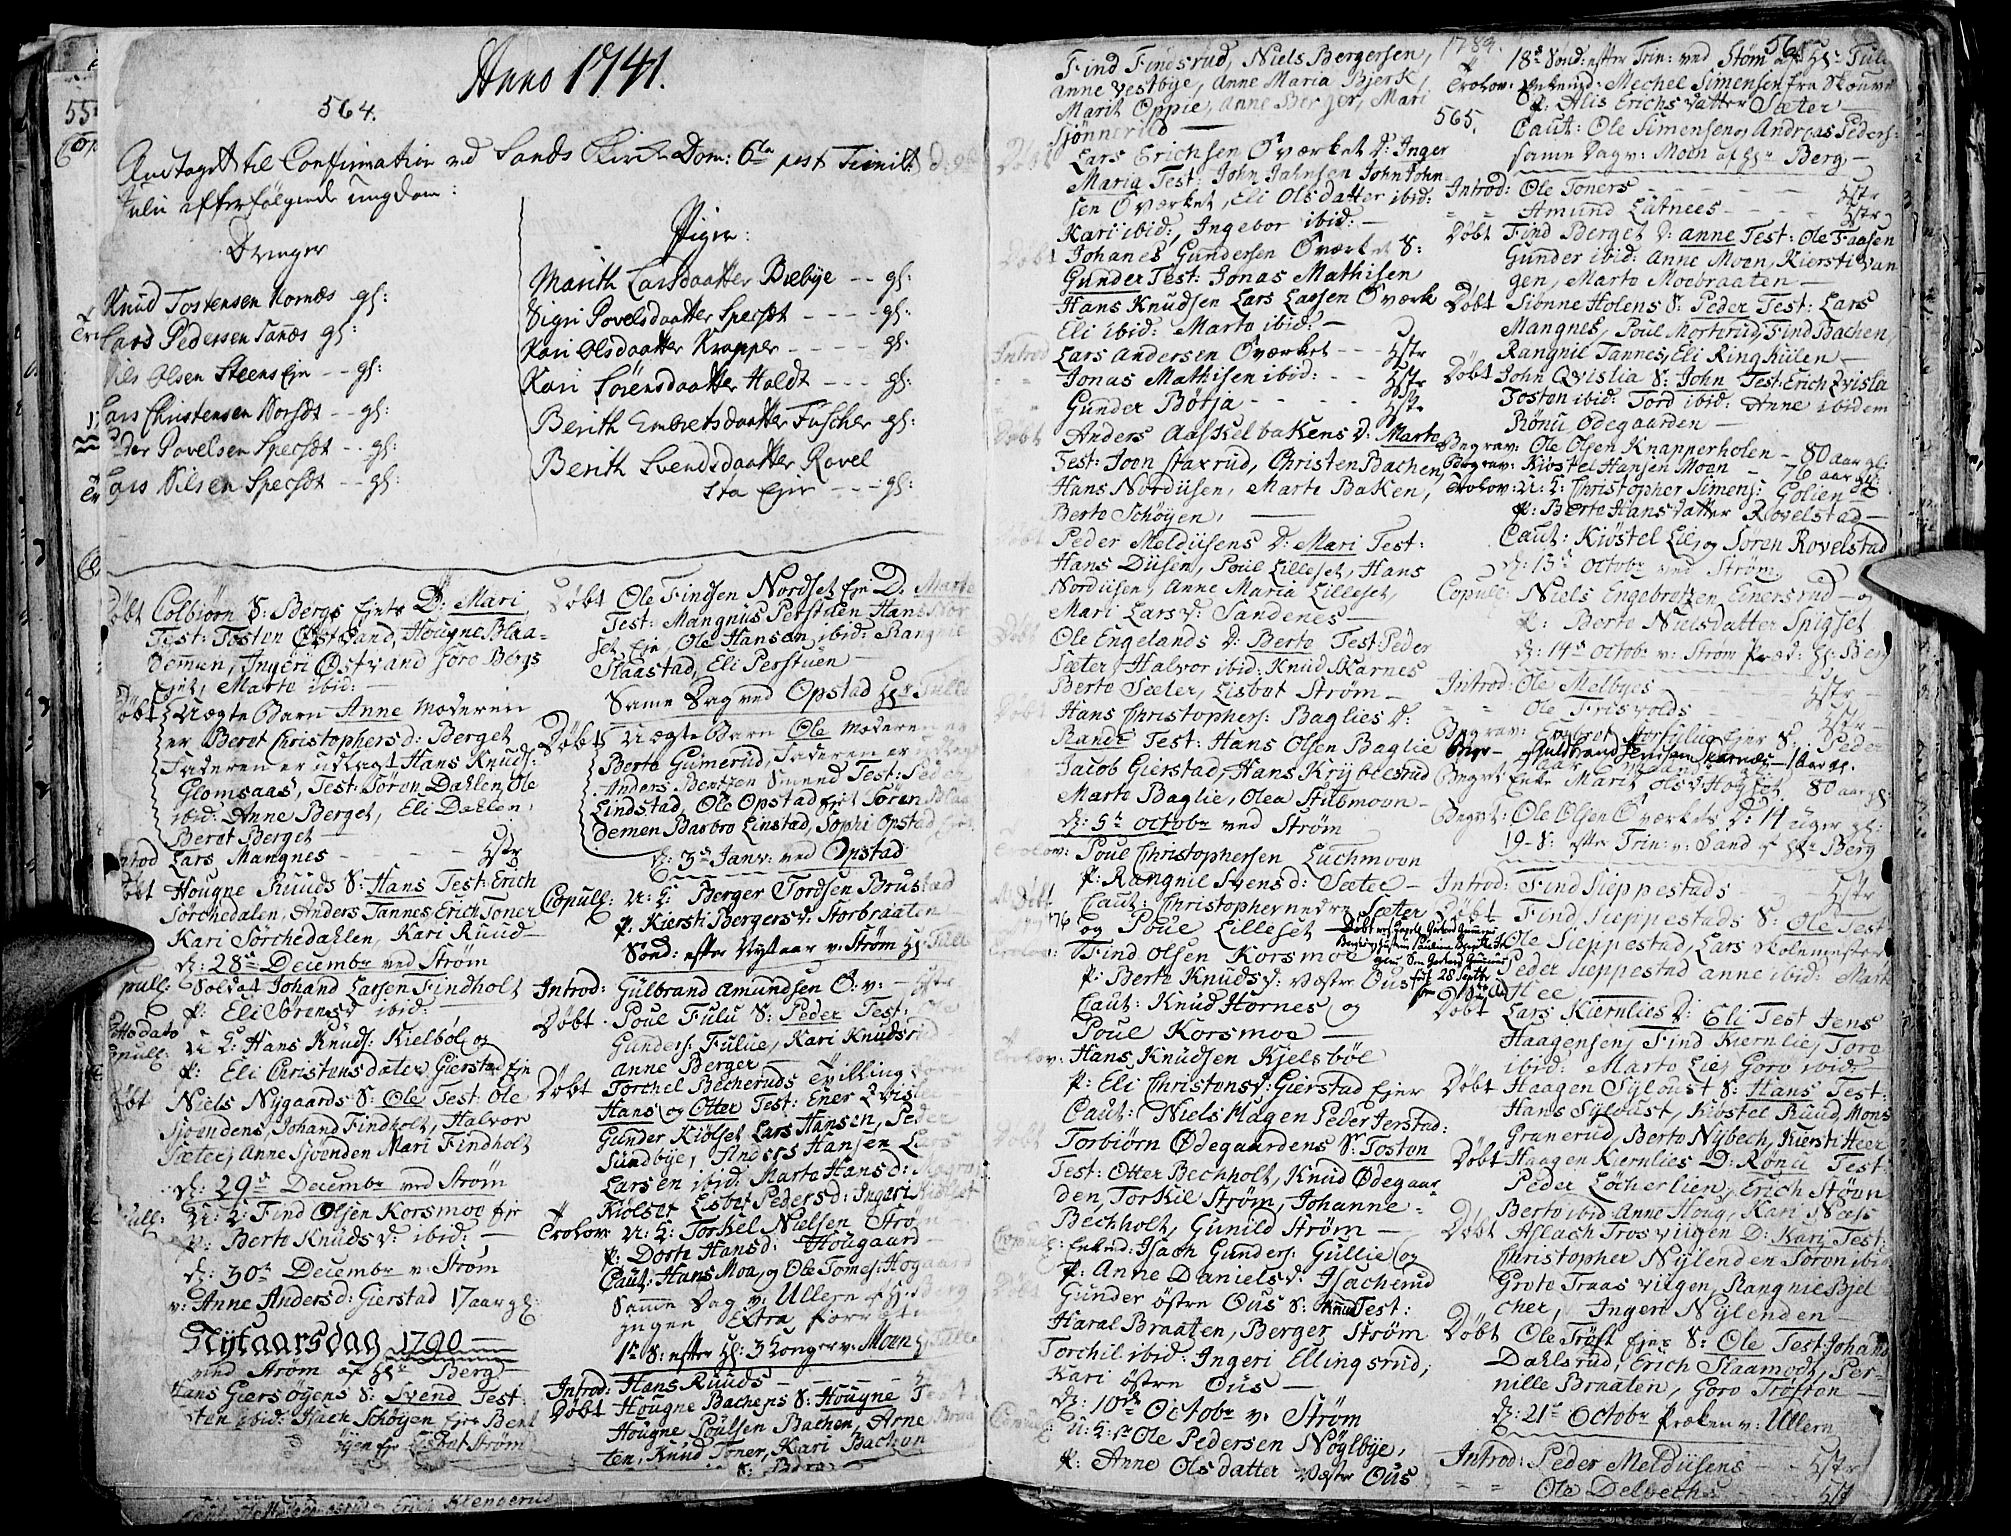 Anno 1741.
564.
Antagett til Confirmation ved Sands Kirche Dom: 6ta post Trinit:
Julii efterfølgende ungdom:
Drenger
Knud Tostensen Hornæs gl:
Lars Pedersen Sanæs gl:
Nils Olsen Steens Eje -- gl:
Lars Christensen Norsæt -- gl:
Peder Povelsen Spersæt -- gl:
Lars Nilsen Spersæt -- gl:
Piger:
Marith Larsdaatter Bæbye -- gl:
Sigri Povelsdaatter Spersæt ---- gl:
Kari Olsdaatter Knapper ---- gl:
Kari Sørensdaatter Holdt --- gl:
Berith Embretsdaatter Fuscher gl:
Berith Svendsdaatter Rovel
sta Ejer --- gl:
Døbt Colbiørn S: Bergs Ejets D: Mari
Test: Tosten Østrand, Hougne Blaa-
demen, Ingeri Østrand Goro Bergs
Ejet, Marte ibid:
Døbt Uægte Barn Anne Moderen
er Beret Christophersd: Berget
Faderen er udlagt Hans Knuds:
Glomsaas, Test: Søren Dahlen, Ole
ibid: Anne Berget, Eli Dahlen,
Beret Berget
Introd Lars Mangnes - - - - hstr
Døbt Hougne Ruuds S: Hans Test: Erich
Sørchedalen, Anders Tannes, Erich Toner
Kari Sørchedahlen, Kari Ruud
d: 28de Decembr ved Strøm
Copull: Soldat Johand Larsen Findholt
p: Eli Sørensd ibid:
Copull: U: K: Hans Knuds: Kielbøl og
p: Eli Christensdater Gierstad Eje
Døbt Niels Nygaards S: Ole Test: Ole
Sjøendens, Johand Findholt, Halvor
Sæter, Anne Sjøenden Mari Findholt
d: 29de Decembr ved Strøm
Copull: U: K: Find Olsen Korsmoe Eje
p: Berte Knudsd: ibid:
d: 30te Decembr v: Strøm
v: Anne Andersd: Gierstad 17 aar gl:
Nytaarsdag 1790
ved Strøm af Hr Berg
Hans Giersøyens S: Svend Test:
ten ibid: Isach Schøyen Eje Beret
øyen Eje Lisbet Strøm
Døbt Ole Findsen Nordset Eje D: Marte
Test: Mangnus Perstuen Hans Nor
set Eje, Ole Hansen ibid: Rangnil
Slaastad, Eli Perstuen
Same Dag ved Opstad Hr Tulle
Døbt Uægte Barn Ole Moderen er
Berte Gumerud, Faderen er udlagt
Anders Bentzen Smeed Test: Peder
Lindstad, Ole Opstad Ejet Søren Blaa
demen Barbro Linstad, Sophi Opstad Ejet
d: 3de Janv: ved Opstad
Copull: U: K: Berger Tordsen Brustad
p: Kiersti Bergersd: Storbraaten
Sønd: efter Nytaar v: Strøm Hr Tulle
Introd: Gulbrand Amundsen Ø: v: - hstr
Døbt Poul Fulu S: Peder Test: Ole
Gunders: Fulue, Kari Knudsrud
Anne Berger
Døbt Torchel Becheruds Tvilling børn
Hans og Otter Test: Ener Qvislie
Gunder Kiølset Lars Hansen, Peder
Sundbye, Anders Hansen Lars
Larsen ibid: Marte Hansd:
Kiølset Lisbet Pedersd: Ingeri Kiølset
Trolov: U: K: Torkel Nielsen Strøm
p: Dorte Hansd: Hougaard
Caut: Hans Moe, og Ole Tomes: Hogaard
Same Dag v: Ullern af Hr: Berg
Ingen Extra forrette
1te S: efter Hl: 3 Konger v: Moen Hr Tulle
Introd: Hans Ruuds
Døbt Hougne Bachens S: Hougne Test:
Hougne Poulsen Bachen, Arne Braa
ten, Knud Toner, Kari Bachen
S: Peder
Find Findsrud, Niels Bergersen,
Anne Vestbye, Anne Maria Bjerk,
Marit Oppie, Anne Berger, Mari
Sjønnerild
Døbt Lars Erichsen Øværket D: Inger
Maria Test: John Jahnsen John John-
sen Øværket, Eli Olsdatter ibid:
Kari ibid:, Ingebor ibid:
Døbt Johanes Gundersen Øværket S:
Gunder Test: Jonas Mathisen
Hans Knudsen Lars Larsen Øværk
Eli ibid: Marte ibid:
Introd Lars Andersen Øværket -- hstr
Jonas Mathisen ibid: -- hstr
Gunder Børja - - - hstr
Døbt Anders Aaskelbakens D: Marte
Test: Joen Staxrud, Christen Bachen,
Hans Nordüsen, Marte Baken,
Berte Schøyen,
Døbt Peder Meldüsens D: Mari Test:
Hans Düsen, Poul Lilleset, Hans
Nordüsen, Anne Maria Lilleset,
Mari Larsd: Sandenes
Døbt Ole Engelands D: Berte Test: Peder
Sæter, Halvor ibid: Knud Skarnes
Berte Sæter, Lisbet Strøm
Døbt Hans Christophers: Baglies D:
Randi Test: Hans Olsen Baglie
Jacob Gierstad, Hans Krÿbelsrud
Marte Baglie, Olea Stibmoen
d: 5te Octobr ved Strøm
Trolov: Poul Christophersen Luchmoen
p: Rangnil Svensd: Sæter
Caut: Christopher nedre Sæter
og Poul Lilleset
Trolov: Find Olsen Korsmoe
p: Berte Knudsd: Vestre Ous
Caut: Knud Hornes og
Poul Korsmoe
Trolov: Hans Knudsen Kjelsbøl
p: Eli Christensd: Gierstad Ejer
Caut: Niels Hagen Peder Jerstad:
Døbt Torbiørn Ødegaardens S: Tosten
Test: Otter Bechholt, Knud Ødegaar-
den, Torkil Strøm, Johanne
Bechholt, Gunild Strøm
Copul: Enkm: Isach Gunders: Gullie og
p: Anne Danielsd: Isacherud
Døbt Gunder Østre Ous S: Knud Test:
Haral Braaten, Berger Strøm
Torchil ibid: Ingeri Ellingsrud,
Kari Østre Ous
d: 10de Octobr v: Strøm
Copul: U: K: Ole Pedersen Nøglbye,
p: Anne Olsdatter Vestr Ous
1789.
565.
18de Sønd: efter Trin: ved Strøm af Hr: Tulle
Trolov: Enkmd: Mechel Simensen fra Skouve
p: Alis Erichsdatter Sæter
Caut: Ole Simensen, Andreas Peders:
same Dag v: Moen af Hr Berg
Introd: Ole Toners - - - hstr
Amund Lutnees - - - hstr
Døbt Find Berget D: Anne Test: Ole Faasen
Gunder ibid: Anne Moen, Kiersti Van
gen, Marte Moebraaten
Døbt Siønne Holens S: Peder Test: Lars
Mangnes, Poul Morterud, Find Bachen,
Rangnil Tannes, Eli Ringhulen
Døbt John Qvislia S: John Test: Erich Qvisla
Tosten ibid: Tord ibid: Anne ibidem
Rønu Ødegaarden
Begrav: Ole Olsen Knapperholen - 80 aar gl:
Begrav: Kiøstel Hansen Moen - 76 aar gl:
Trolov: U: K: Christopher Simens: Golien
p: Berte Hansdatter Rovelstad
Caut: Kiøstel Lie, og Søren Rovelstad
d: 13de Octobr ved Strøm
Copull: Niels Engebretzen, Einersrud og
p: Berte Nielsdatter Snigset
d: 14de Octobr v: Strøm Præd: Hr: Berg
Introd: Ole Melbyes hstr
Ole Frisvolds hstr
Begrav: Engbret Ejer S: Peder
Begr- Guldbrand Jensen Skarnes 1 aar gl.
Begrt Enke Marit Olsd Høgset 80 aar gl:
Begrvt: Ole Olsen Øværkets D: 14 uger gl:
19 S: efter Trin: v: Sand af Hr Berg
Introd: Find Sieppestads - hstr
Døbt Find Sieppestads S: Ole Test
Ole Sieppestad, Lars Skolemester
Peder Sieppestad Anne ibid: Marte
Hee
Døbt Lars Kiernlies D: Eli Test Jens
Haagensen, Find Kiernlie, Tore
ibid: Marte Lie, Goro ibid:
Døbt Haagen Syloust S: Hans Test:
Hans Syloust, Kiøstel Ruud, Mons
Granerud, Berte Nybech, Kiersti Heer
Døbt Haagen Kiernlies D: Rønu Test:
Peder Locherlien, Erich Støen
Berte ibid: Anne Houg, Kari Næss
Døbt Aslach Trosviigen D: Kari Test:
Christopher Nylenden Søren ibid:
Grete Traasviigen, Rangnil Bjel
cher, Ingeri Nylenden
Døbt Ole Trøst Ejer S: Ole Test: Johand
Dahlsrud, Erich Slaamoet, Per-
nille Braaten, Goro Trøften
d: 21de Octobr Præken v: Ullern
Introd: Peder Meldüsens - - hstr
Ole Delbech: - - - hstr